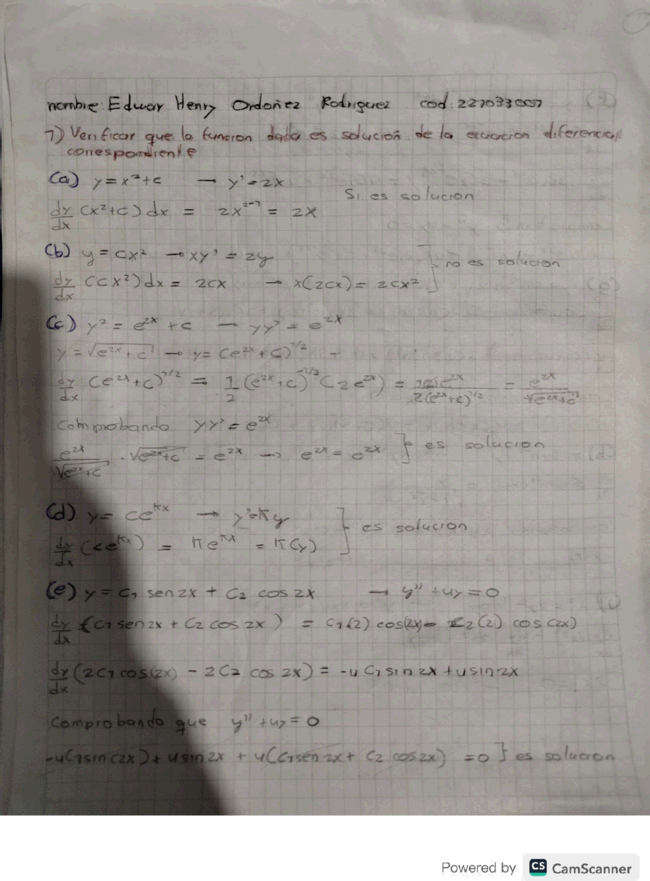 nombre Edwar Henry Ordoñez Rodriguez cod 227033007
1) Verificar que la funcion dada es solución de la ecuacion diferencial
correspondiente
(a) y = x² + c → y' = 2x
Si es solucion
dy/dx (x² + c) dx = 2x²⁻¹ = 2x
(b) y = cx² → xy' = 2y
no es solucion
dy/dx (cx²) dx = 2cx → x(2cx) = 2cx²
(c) y² = e²ˣ + c → yy' = e²ˣ
y = √(e²ˣ + c) → y = (e²ˣ + c)^1/2
dy/dx (e²ˣ + c)^1/2 = 1/2 (e²ˣ + c)^-1/2 (2e²ˣ) = e²ˣ / 2(e²ˣ + c)^1/2 = e²ˣ / √(e²ˣ + c)
Comprobando yy' = e²ˣ
e²ˣ / √(e²ˣ + c) · √(e²ˣ + c) = e²ˣ → e²ˣ = e²ˣ } es solucion
(d) y = ce^kx → y' = ky
es solucion
dy/dx (ce^kx) = ke^kx = k(y)
(e) y = C₁ sen 2x + C₂ cos 2x → y'' + 4y = 0
dy/dx (C₁ sen 2x + C₂ cos 2x) = C₁(2) cos(2x) - C₂(2) cos(2x)
dy/dx (2C₁ cos(2x) - 2C₂ cos 2x) = -4C₁ sin 2x + 4 sin 2x
Comprobando que y'' + 4y = 0
-4C₁ sin(2x) + 4 sin 2x + 4(C₁ sen 2x + C₂ cos 2x) = 0 } es solucion
Powered by CS CamScanner